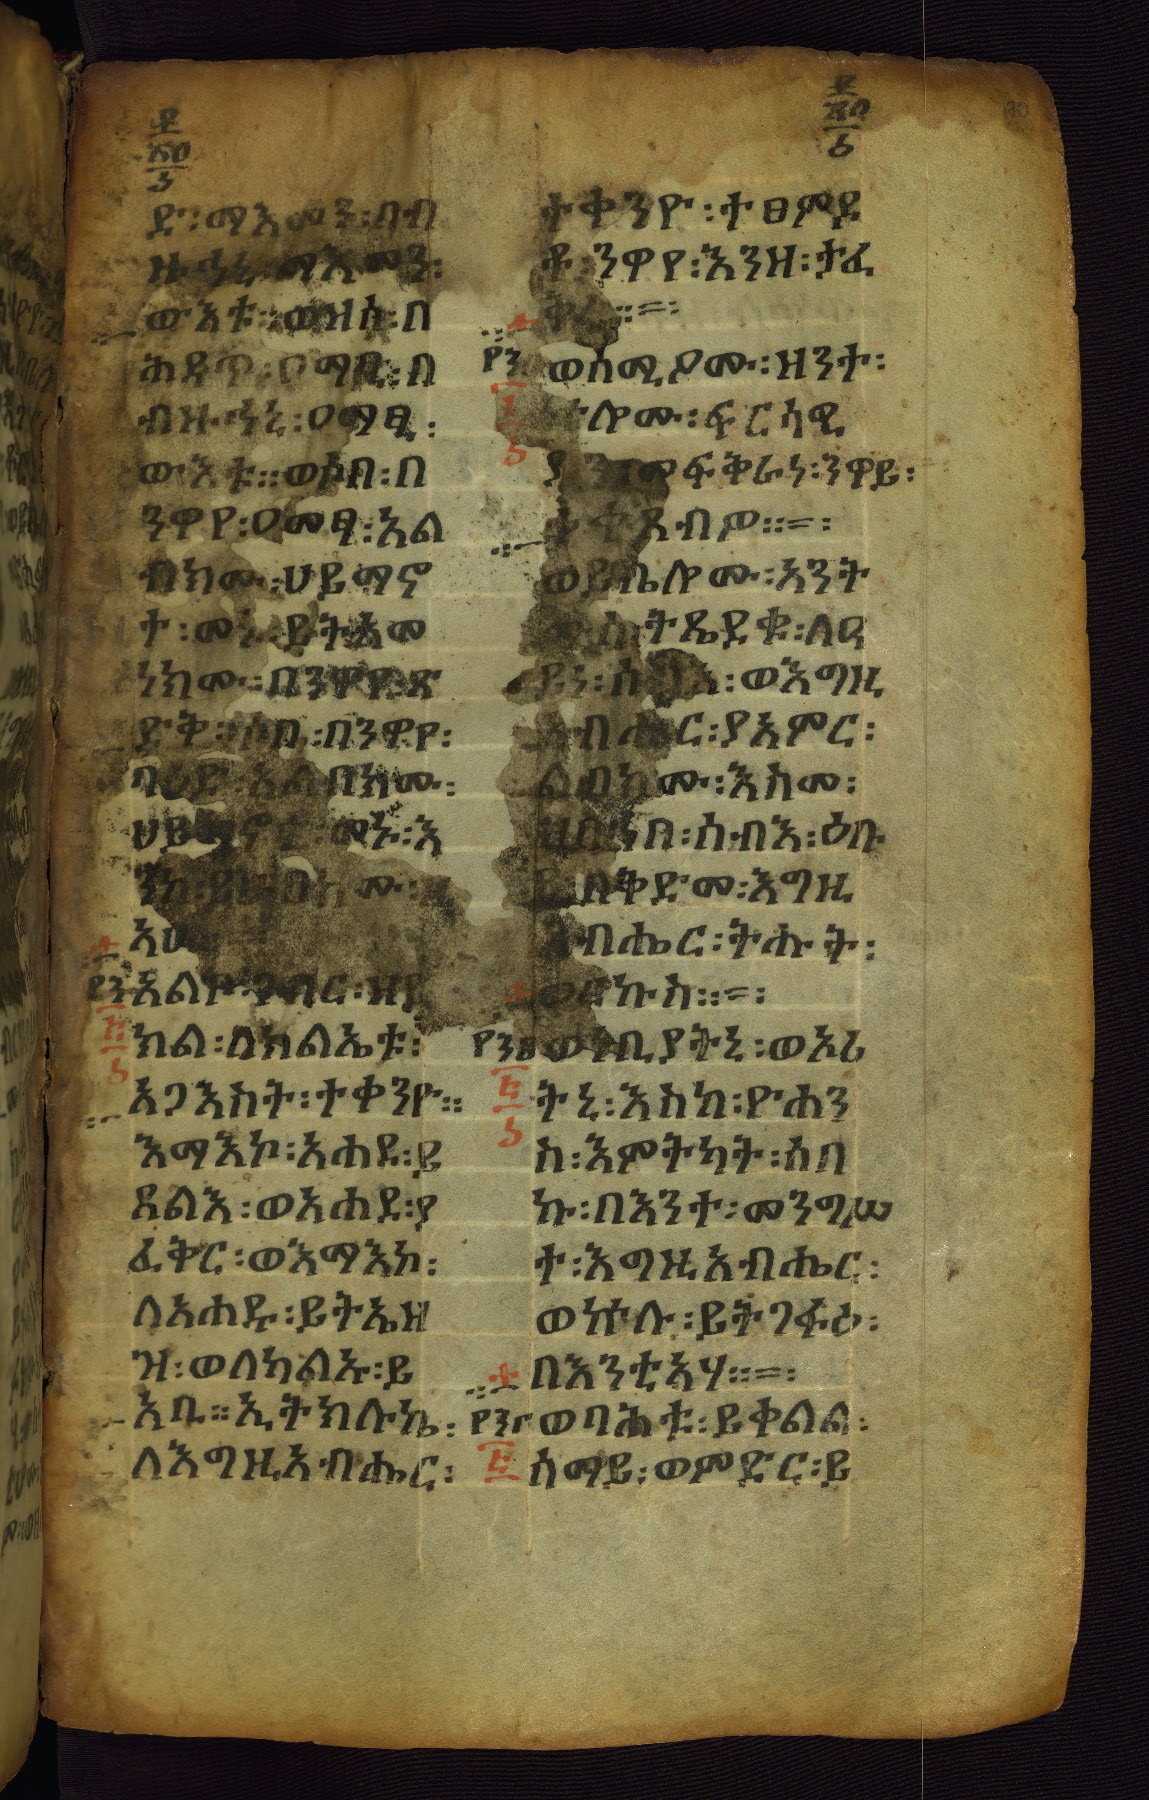 ድ፡ማእመን፡በብ
ዙኅኒ፡ማእመን፡
ውእቱ፡፡ወዝሰ፡በ
ሕዳጥ፡ዐማፂ፡በ
ብዙኅኒ፡ዐማፂ፡
ውእቱ፡፡ወሶበ፡በ
ንዋየ፡ዐመፃ፡አል
ብክሙ፡ሀይማኖ
ተ፡መኑ፡ይትአመ
ነክሙ፡በንዋየ፡ጽ
ድቅ፡በንዋየ፡
ባዕድ፡አልብክሙ፡
ሀይማኖተ፡መኑ፡እ
አል፡ገብር፡ዘይ
ክል፡ለክልኤቱ፡
አጋእስት፡ተቀንዮ፡፡
እማእኮ፡አሐደ፡ይ
ጸልእ፡ወአሐደ፡ያ
ፈቅር፡ወእማእኮ፡
ለአሐዱ፡ይትኤዘ
ዝ፡ወለካልኡ፡ይ
እቢ፡፡ኢትክሉኬ፡
ለእግዚአብሔር፡
ተቀንዮ፡ተፀምዶ
ቶ፡ንዋየ፡እንዘ፡ታፈ
ወሰሚዖሙ፡ዘንተ፡
ኵሎሙ፡ፍርሳዊ
ያን፡መፍቅራነ፡ንዋይ፡
ወይቤሎሙ፡አንት
ሙሰ፡ትጼድቁ፡ለዓ
ይነ፡ሰብእ፡ወእግዚ
አብሔር፡ያአምር፡
ልብክሙ፡እስመ፡
ዘበኀበ፡ሰብእ፡ዕቡ
በቅድመ፡እግዚ
አብሔር፡ትሑት፡
ወርኩስ፡፡=፡
ወነቢያትኒ፡ወኦሪ
ትኒ፡እስከ፡ዮሐን
ስ፡እምትካት፡ሰበ
ኩ፡በእንተ፡መንግሥ
ተ፡እግዚአብሔር፡
ወኵሉ፡ይትገፋዕ፡
በእንቲአሃ፡፡=፡
ወባሕቱ፡ይቀልል፡
ሰማይ፡ወምድር፡ይ